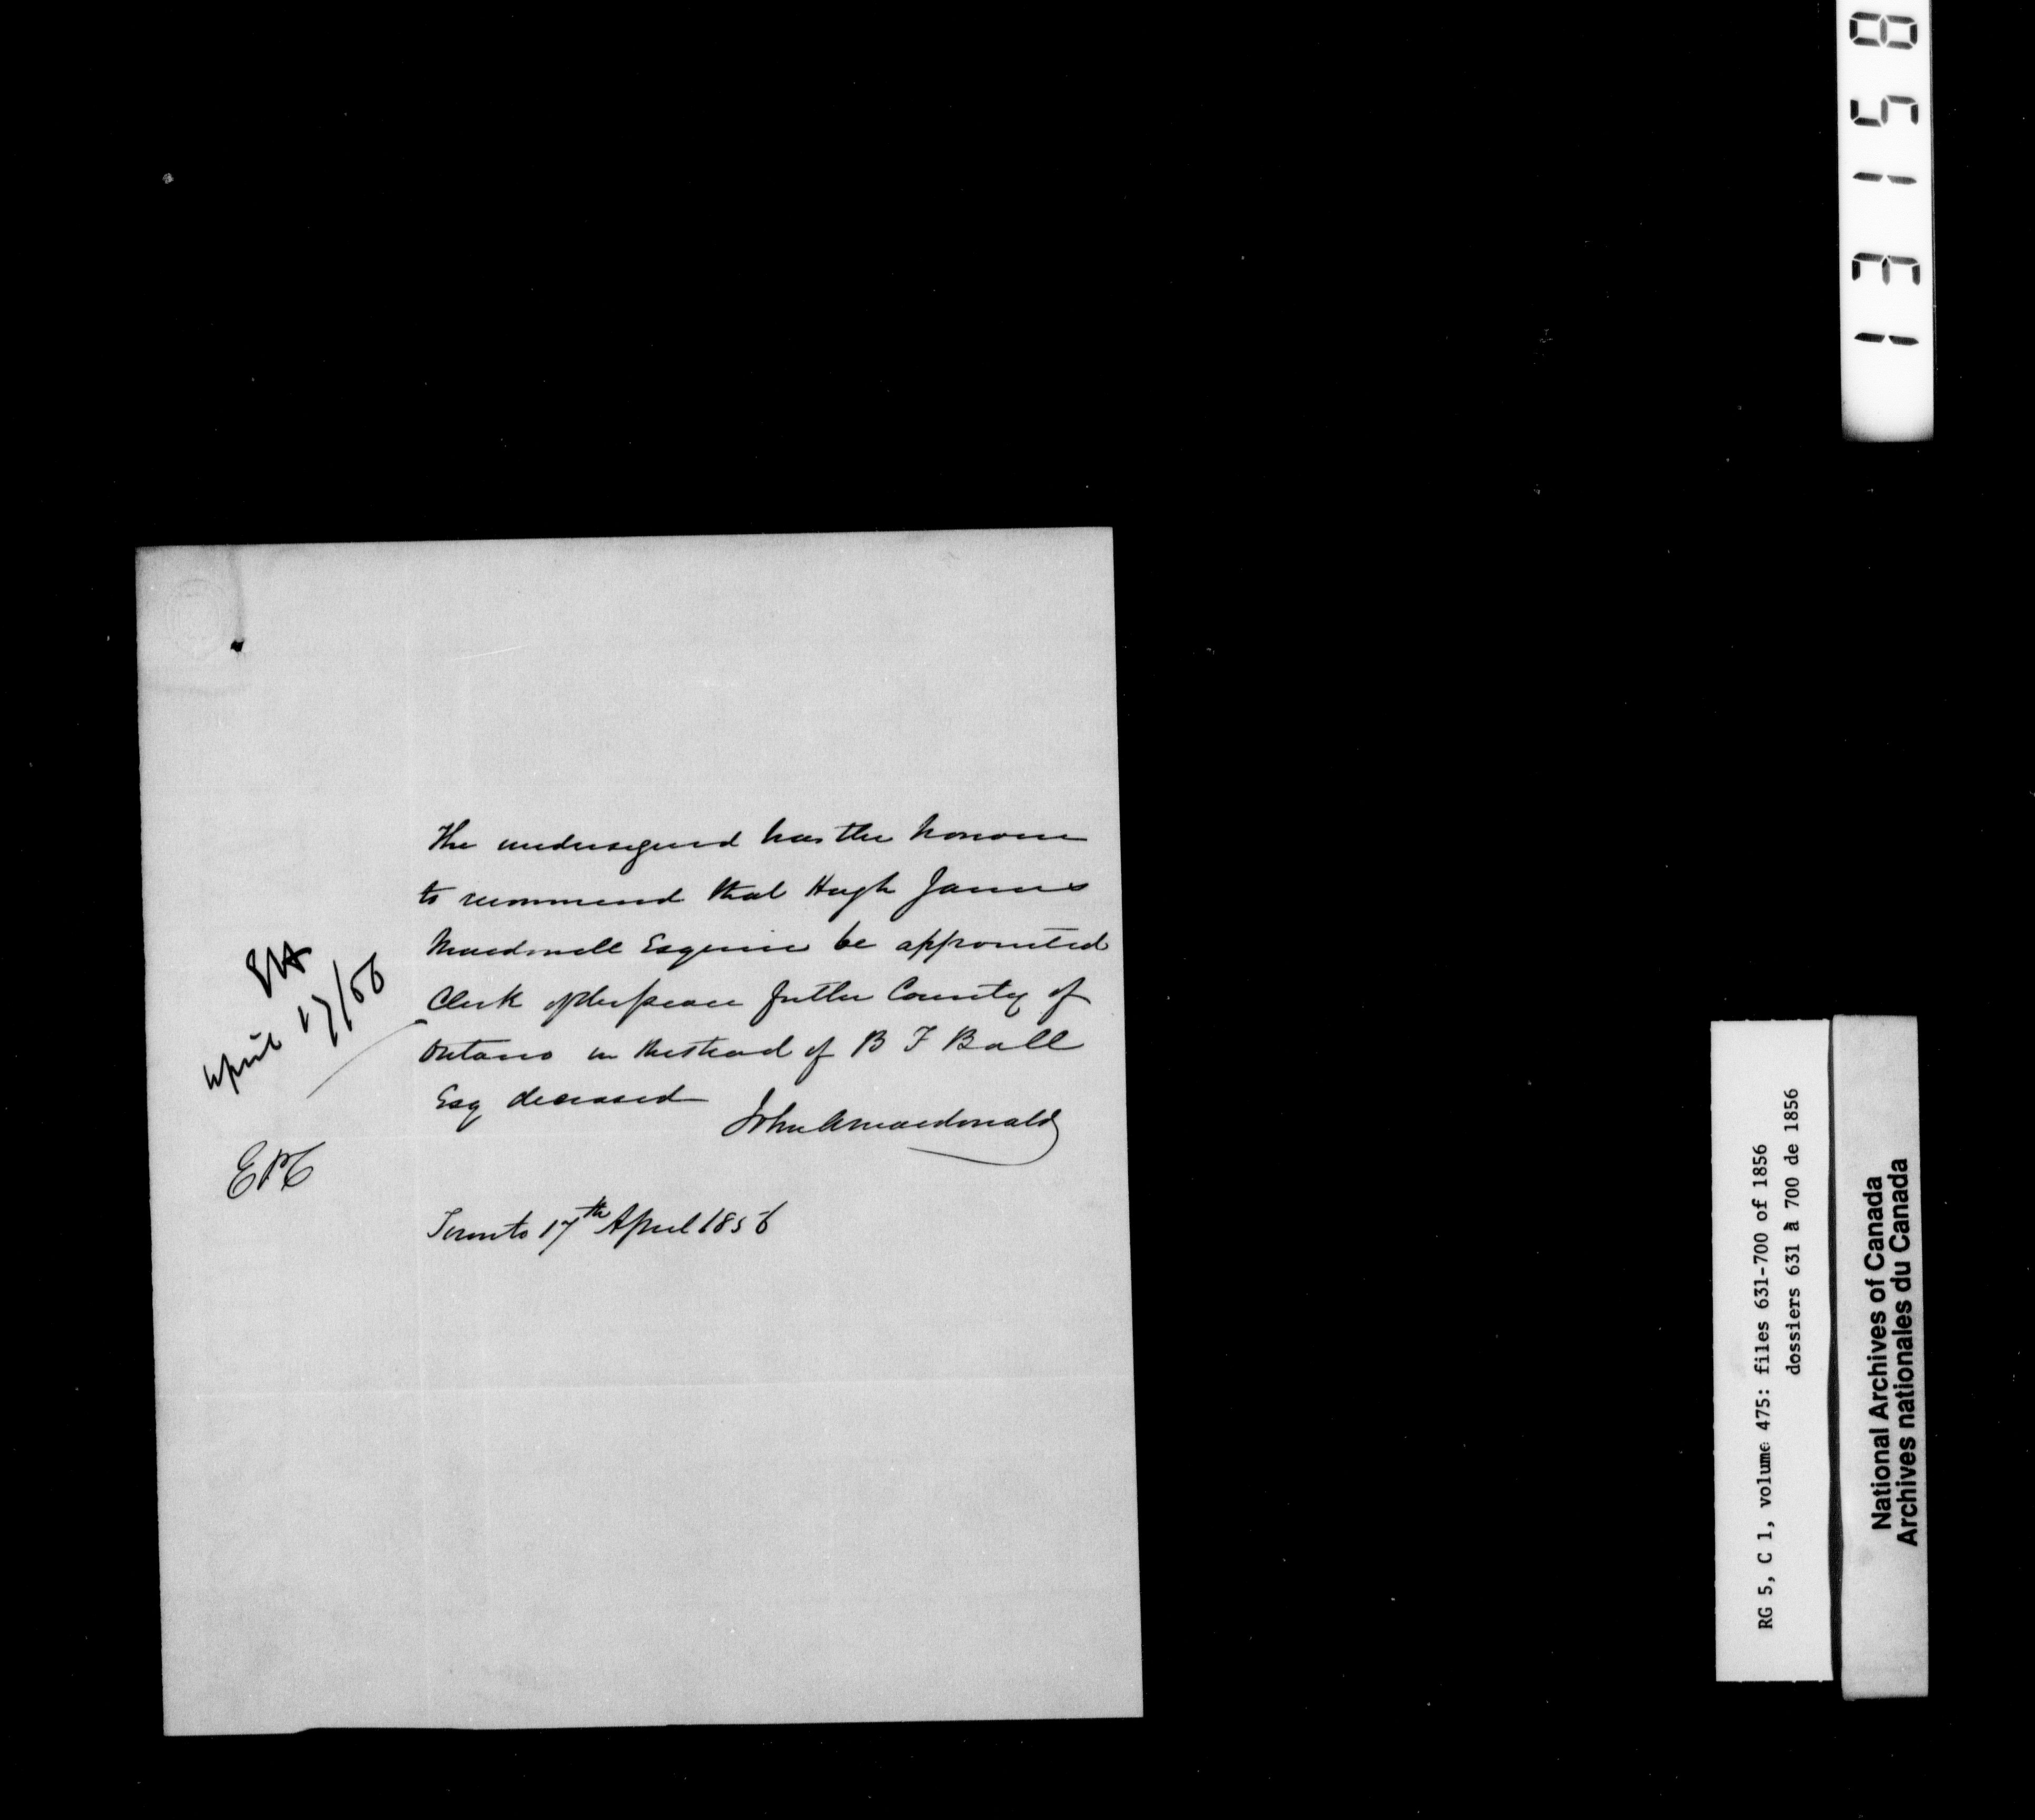 The undersigned has the honour
to recommend that Hugh James
Macdonell Esquire be appointed
Clerk of the peace for the County of
Ontario in the stead of B F Ball
Esq deceased
John A Macdonald
Toronto 17th April 1856
April 17/56
13158
RG 5, C 1, volume 475: files 631-700 of 1856
dossiers 631 à 700 de 1856
National Archives of Canada
Archives nationales du Canada